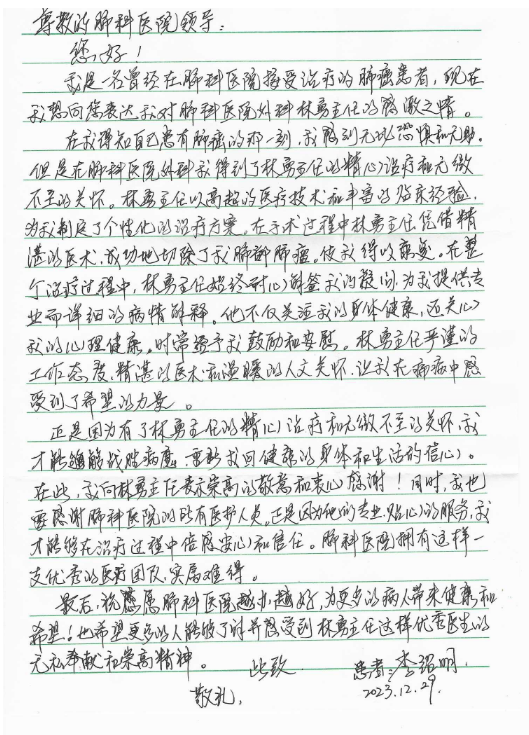 尊敬的肺科医院领导:
您好!
我是一名曾经在肺科医院接受治疗的肺癌患者,现在
我想向您表达我对肺科医院外科林勇主任的感激之情。
在我得知自己患有肺癌的那一刻,我感到无比恐惧和无助。
但是在肺科医院外科我得到了林勇主任的精心治疗和无微
不至的关怀。林勇主任以高超的医疗技术和丰富的临床经验,
为我制定了个性化的治疗方案。在手术过程中林勇主任凭借精
湛的医术,成功地切除了我肺部肿瘤。使我得以康复。在整
个治疗过程中,林勇主任始终耐心解答我的疑问,为我提供专
业而详细的病情解释。他不仅关注我的身体健康,还关心
我的心理健康。时常给予我鼓励和安慰。林勇主任严谨的
工作态度、精湛的医术和温暖的人文关怀,让我在病痛中感
受到了希望的力量。
正是因为有了林勇主任的精心治疗和无微不至的关怀,我
才能够战胜病魔,重新找回健康的身体和生活的信心。
在此,我向林勇主任表示崇高的敬意和衷心感谢!同时,我也
要感谢肺科医院的所有医护人员,正是因为他们的专业、贴心的服务,我
才能够在治疗过程中倍感安心和信任。肺科医院拥有这样一
支优秀的医疗团队,实属难得。
最后,祝愿肺科医院越办越好,为更多的病人带来健康和
希望!也希望更多的人能够了解并感受到林勇主任这样优秀医生的
无私奉献和崇高精神。
此致 患者:李绍明.
敬礼, 2023.12.29.